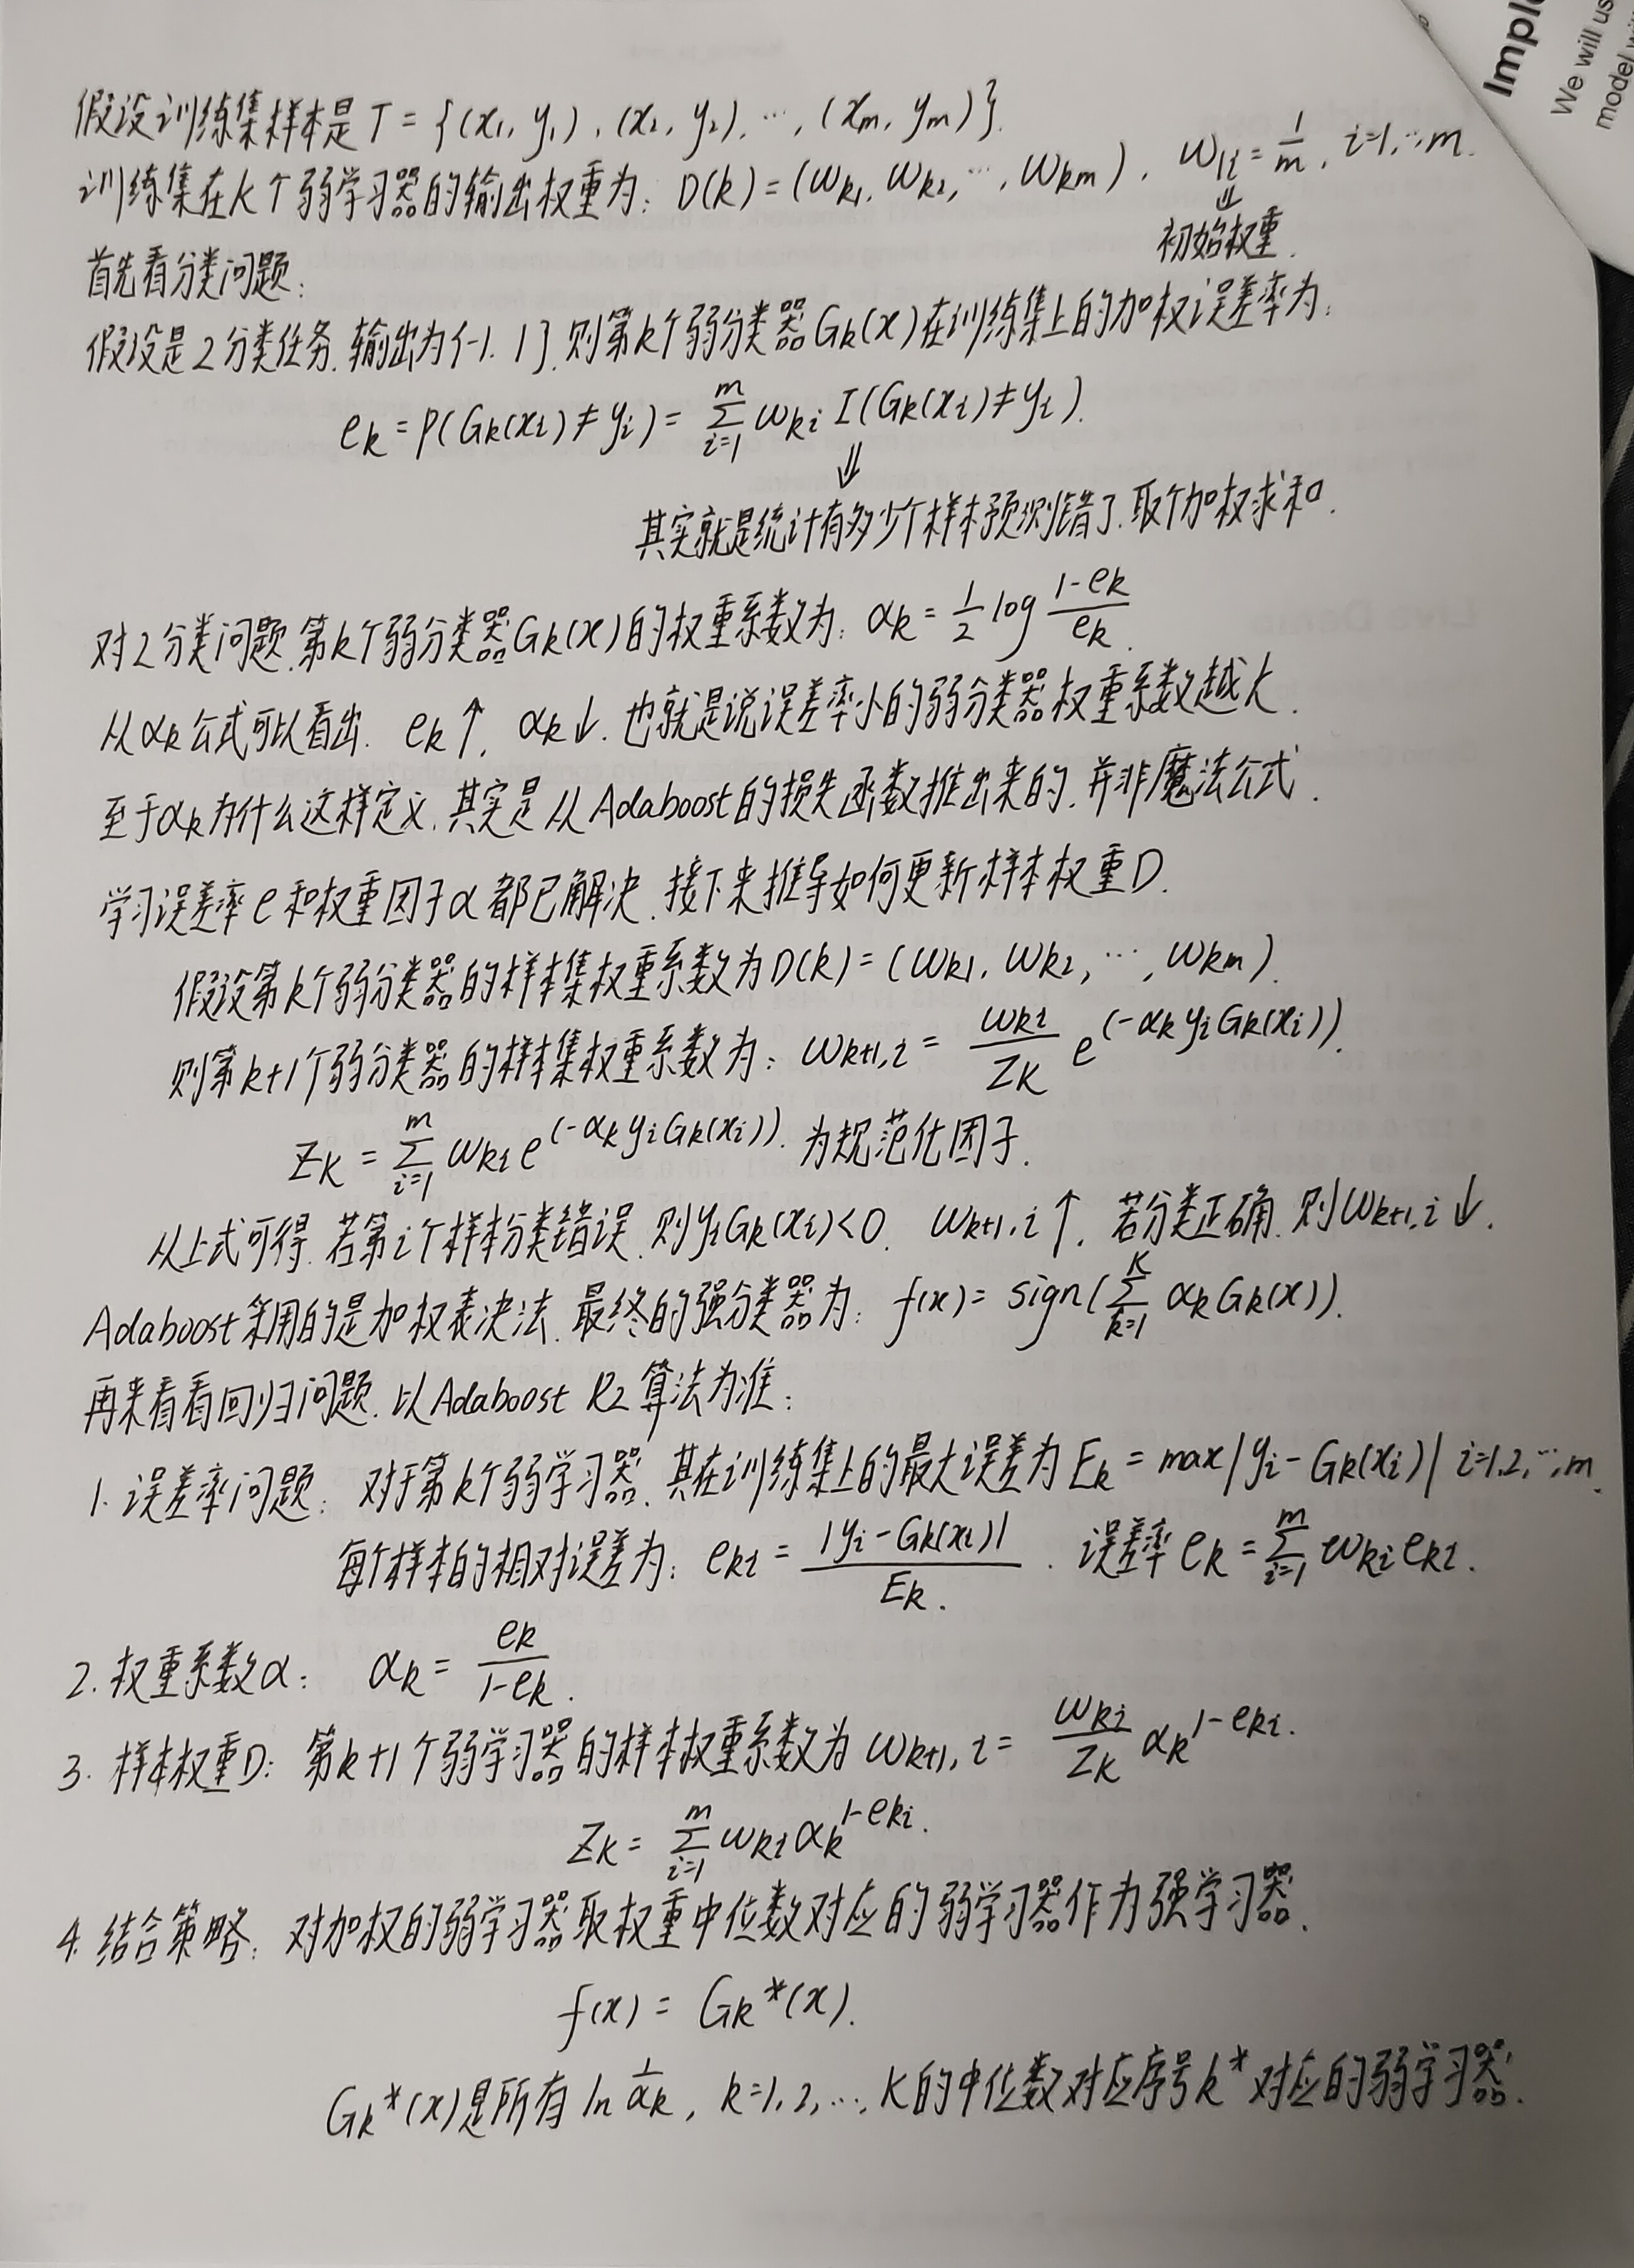 Imple
We will us
model wi
假设训练集样本是 T = {(x₁, y₁), (x₂, y₂), ⋯, (xₘ, yₘ)}.
训练集在K个弱学习器的输出权重为: D(k) = (ωk1, ωk2, ⋯, ωkm), ω1i = 1/m, i=1,⋯,m.
⇓
初始权重.
首先看分类问题:
假设是2分类任务. 输出为{-1, 1}. 则第k个弱分类器Gk(x)在训练集上的加权误差率为:
ek = P(Gk(xi) ≠ yi) = ∑_{i=1}^{m} ωki I(Gk(xi) ≠ yi).
⇓
其实就是统计有多少个样本预测错了. 取个加权求和.
对2分类问题. 第k个弱分类器Gk(x)的权重系数为: αk = 1/2 log (1-ek)/ek.
从αk公式可以看出. ek↑, αk↓. 也就是说误差率小的弱分类器权重系数越大.
至于αk为什么这样定义. 其实是从Adaboost的损失函数推出来的. 并非魔法公式.
学习误差率e和权重因子α都已解决. 接下来推导如何更新样本权重D.
假设第k个弱分类器的样本集权重系数为D(k) = (ωk1, ωk2, ⋯, ωkm).
则第k+1个弱分类器的样本集权重系数为: ωk+1,i = ωki/Zk e^(-αk yi Gk(xi)).
Zk = ∑_{i=1}^{m} ωki e^(-αk yi Gk(xi)). 为规范化因子.
从上式可得. 若第i个样本分类错误. 则yiGk(xi)<0. ωk+1,i↑. 若分类正确. 则ωk+1,i↓.
Adaboost采用的是加权表决法. 最终的强分类器为: f(x) = sign(∑_{k=1}^{K} αk Gk(x)).
再来看看回归问题. 以Adaboost R2算法为准:
1. 误差率问题: 对于第k个弱学习器. 其在训练集上的最大误差为 Ek = max|yi - Gk(xi)| i=1,2,⋯,m.
每个样本的相对误差为: eki = |yi - Gk(xi)|/Ek. 误差率 ek = ∑_{i=1}^{m} ωki eki.
2. 权重系数α: αk = ek/(1-ek).
3. 样本权重D: 第k+1个弱学习器的样本权重系数为 ωk+1,i = ωki/Zk αk^{1-eki}.
Zk = ∑_{i=1}^{m} ωki αk^{1-eki}.
4. 结合策略: 对加权的弱学习器取权重中位数对应的弱学习器作为强学习器.
f(x) = Gk*(x).
Gk*(x)是所有 ln 1/αk, k=1,2,⋯,K的中位数对应序号k*对应的弱学习器.